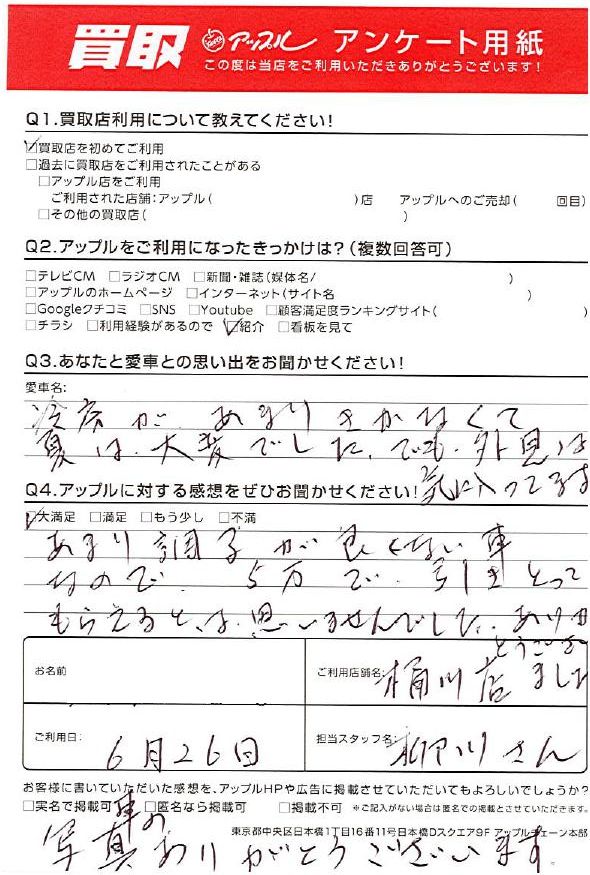 買取 アップル アンケート用紙
この度は当店をご利用いただきありがとうございます！
Q1.買取店利用について教えてください！
☑買取店を初めてご利用
□過去に買取店をご利用されたことがある
□アップル店をご利用
ご利用された店舗：アップル（　）店　アップルへのご売却（　回目）
□その他の買取店（　）
Q2.アップルをご利用になったきっかけは？（複数回答可）
□テレビCM □ラジオCM □新聞・雑誌（媒体名/　）
□アップルのホームページ □インターネット（サイト名　）
□Googleクチコミ □SNS □Youtube □顧客満足度ランキングサイト（　）
□チラシ □利用経験があるので ☑紹介 □看板を見て
Q3.あなたと愛車との思い出をお聞かせください！
愛車名：
冷房が、あまりきかなくて
夏は、大変でした、でも、外見は
気に入ってます
Q4.アップルに対する感想をぜひお聞かせください！
☑大満足 □満足 □もう少し □不満
あまり調子が良くない車
なので、5万で、引きとって
もらえるとは、思いませんでした、ありが
とうござい
ました
お名前
ご利用店舗名：桶川店
ご利用日：6月26日
担当スタッフ名：柳川さん
お客様に書いていただいた感想を、アップルHPや広告に掲載させていただいてもよろしいでしょうか？
□実名で掲載可 □匿名なら掲載可 □掲載不可 ※ご記入がない場合は匿名での掲載とさせていただきます。
東京都中央区日本橋1丁目16番11号日本橋Dスクエア9F アップルチェーン本部
車の
写真ありがとうございます